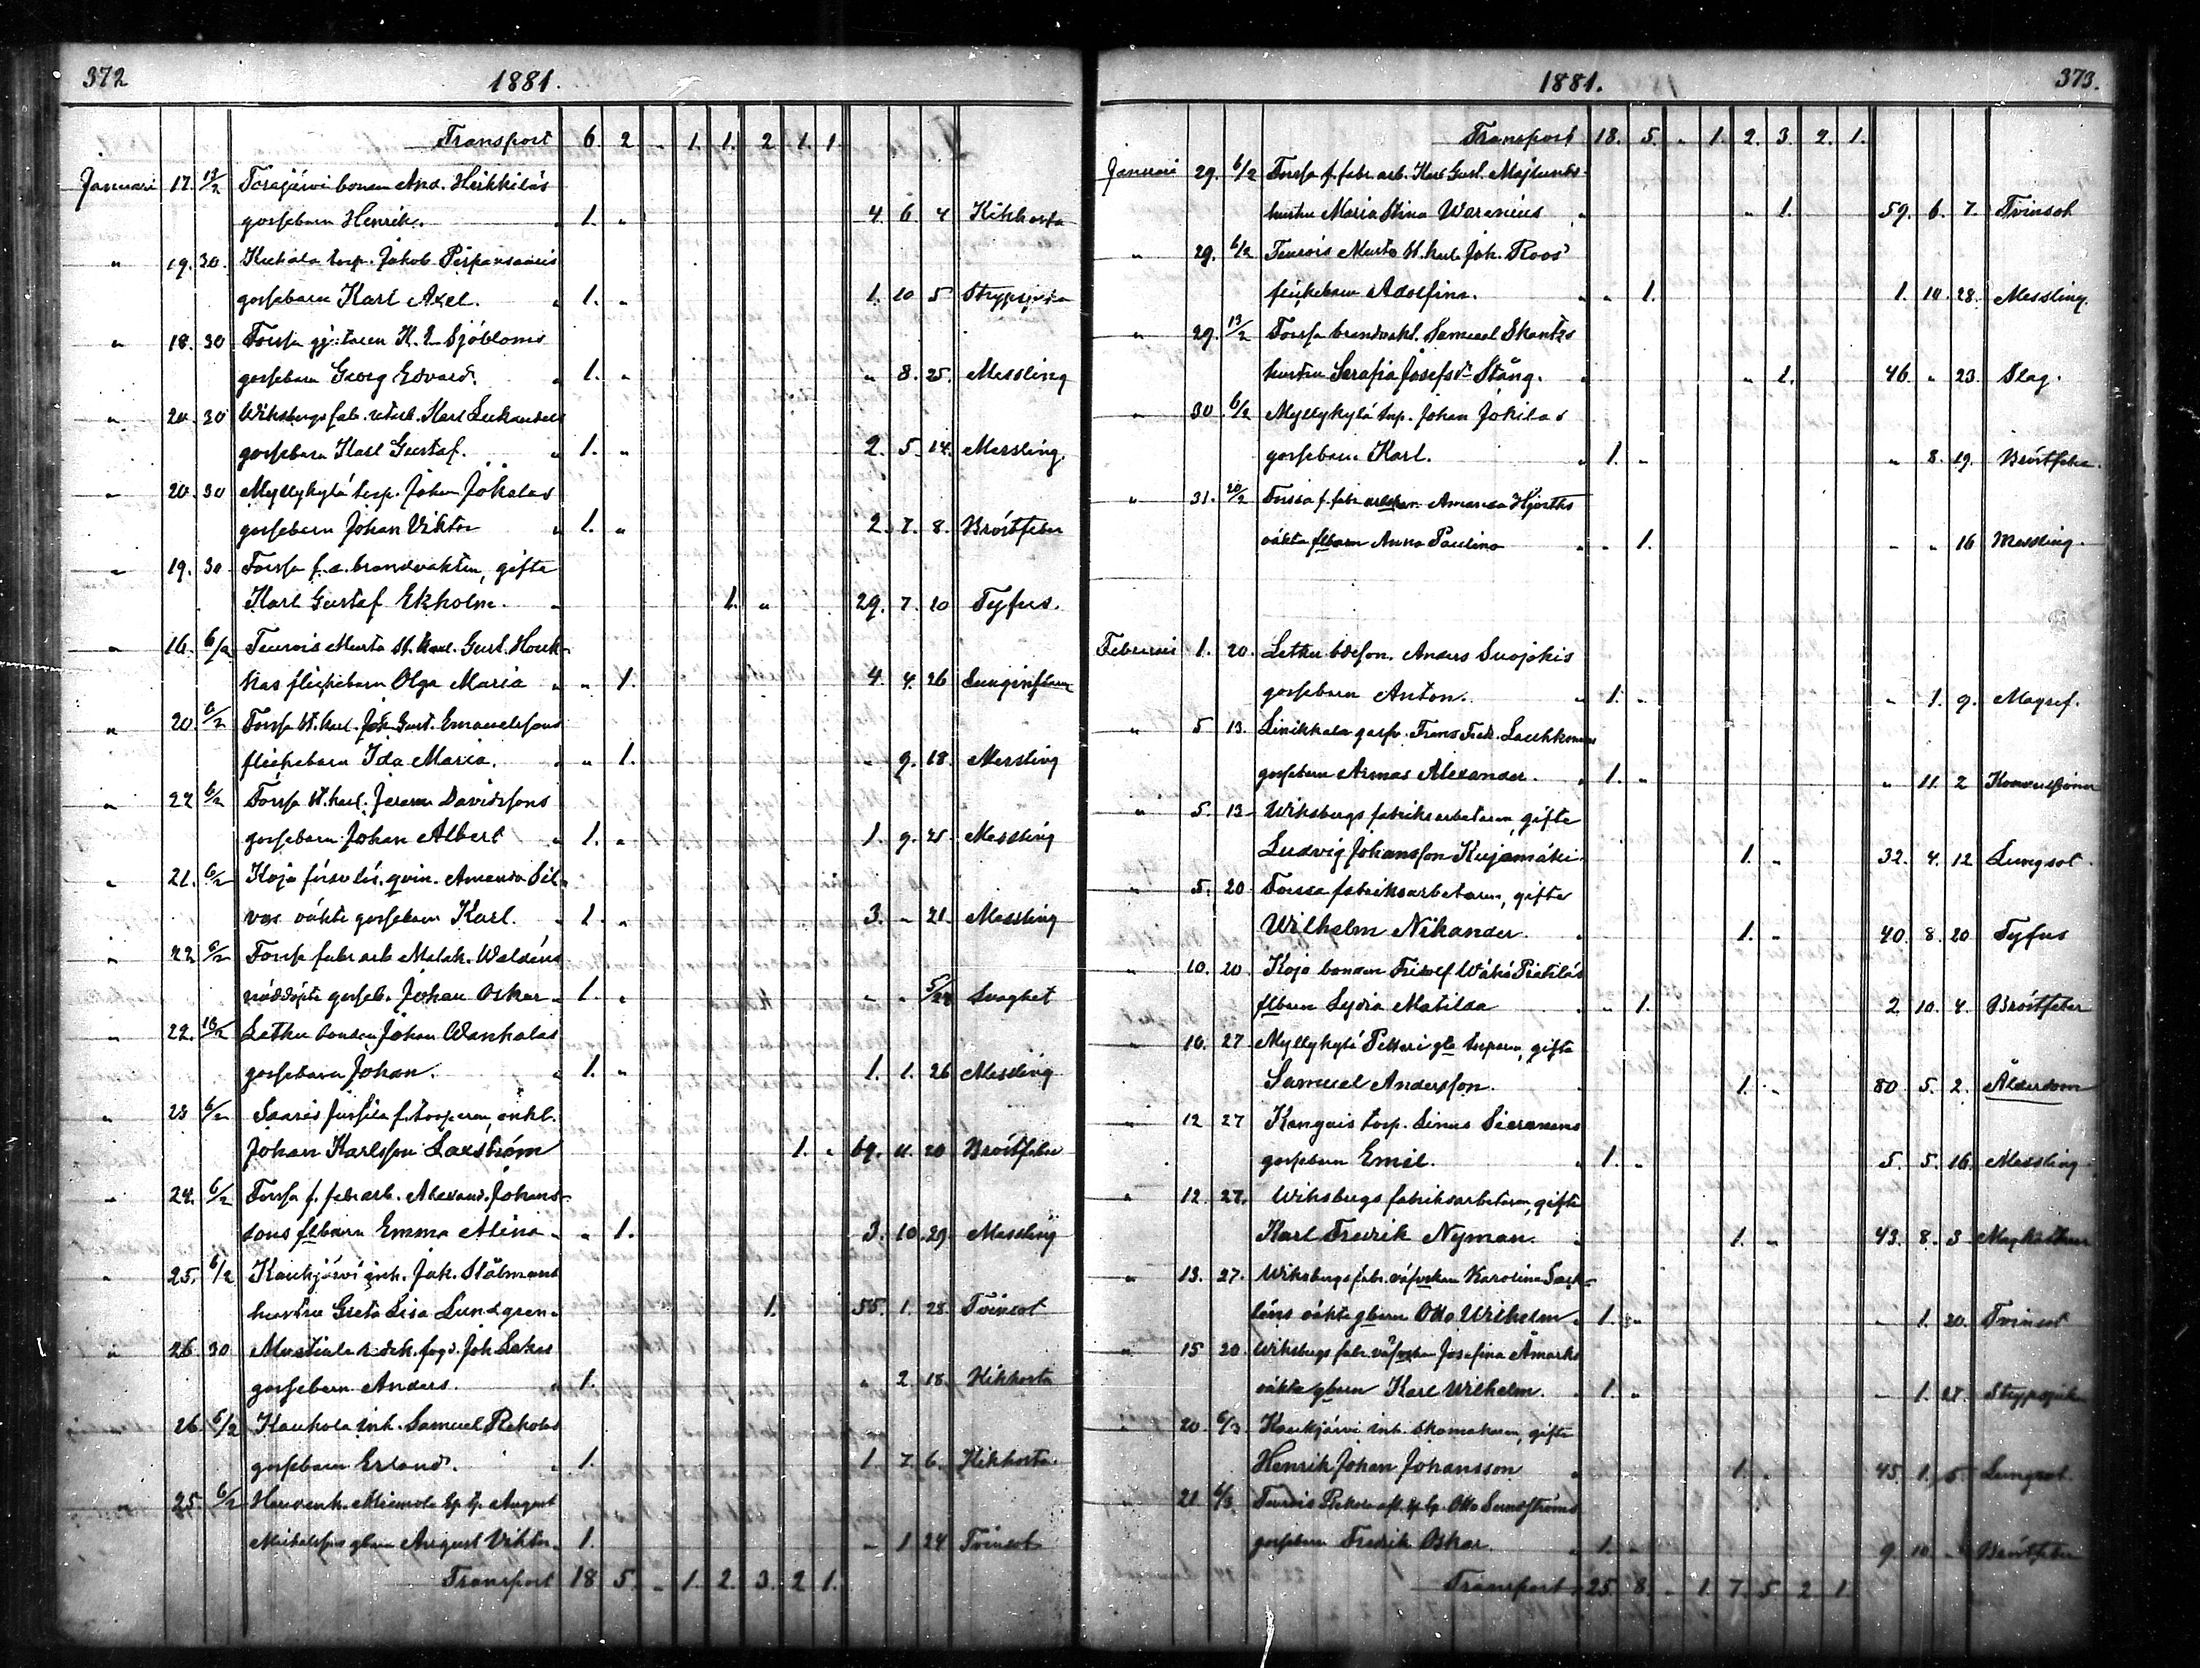 372
1881.
Transport 6. 2 „ 1. 1. 2 1. 1.
Januari 17. 13/2 Torajärvi bonden And. Heikkiläs
gossebarn Henrik. „ 1. „ 4 6 4 Kikhosta
„ 19. 30. Kuhala torp. Jakob
gossebarn Karl Axel. „ 1. „ 1. 10 5 Strypsjuka
„ 18. 30 Forssa gjutaren K. E. Sjöbloms
gossebarn Georg Edvard. „ 1. „ „ 8. 25. Messling
„ 20. 30 Wiksbergs fab. Karl
gossebarn Karl Gustaf. „ 1. „ 2. 5. 14. Messling.
„ 20. 30 Myllykylä torp. Johan Jokelas
gossebarn Johan Viktor „ 1. „ 2. 7. 8. Bröstfeber
„ 19. 30 Forssa f. d. brandvakten, gifte
Karl Gustaf Ekholm. „ 1. „ 29. 7. 10 Tyfus.
„ 16. 6/2 Teurois Murto st. karl. Gust. Houk-
kas flickebarn Olga Maria „ „ 1. 4. 4. 26
„ 20. 6/2 Forssa st. karl. Joh. Gust. Emanuelssons
flickebarn Ida Maria. „ „ 1. „ 9. 18. Messling
„ 22 6/2 Forssa st. karl. Davidssons
gossebarn Johan Albert „ 1. „ 1. 9. 25 Messling
„ 21. 6/2 Kojo qvin. Amanda Sil-
vas oäkta gossebarn Karl. „ 1. „ 3. „ 21. Messling
„ 22 6/2 Forssa fabr. arb. Malak. Waldéns
nöddöpte gosseb. Johan Oskar „ 1. „ „ „ 5/24 Svaghet
„ 22. 13/2 Letku bonden Johan Wanhalas
gossebarn Johan. „ 1. „ 1. 1. 26 Messling
„ 23 6/2 Saaris Jussila f. torparen, enkl.
Johan Karlsson Laxström 1. „ 69. 11. 20 Bröstfeber
„ 24. 6/2 Forssa f. fabr. arb. Alexand. Johans-
sons flbarn Emma Alina „ „ 1. 3. 10. 29. Messling
„ 25. 6/2 Kaukjärvi inh. Jak. Stålmans
hustru Greta Lisa Lundgren „ 1. 55. 1. 28. Tvinsot
„ 26. 30 Mustiala ladek. fogd. Joh. Lakes
gossebarn Anders. „ 1. „ 2. 18. Kikhosta
26. 6/2 Kauhola inh. Samuel Rekolas
gossebarn Erland. „ 1. 1 7. 6. Kikhosta.
„ 25. 6/2 August
gbarn August Viktor „ 1. „ 1 24 Tvinsot
Transport 18 5. „ 1. 2. 3. 2 1.
1881.
373.
Transport 18. 5. „ 1. 2. 3. 2. 1.
Januari 29. 6/2 Forssa f. fabr. arb. Karl Gust. Majlunds
hustru Maria Stina Waranius „ „ 1. 59. 6. 7. Tvinsot
„ 29. 6/2 Teurois Murto st. karl. Joh. Roos'
flickebarn Adolfina. „ „ 1. 1. 10. 28. Messling.
„ 29. 13/2 Forssa brandvakt. Samuel Skantzs
hustru Serafia Josefsdr Stång. „ „ 1. 46. „ 23. Slag.
„ 30 6/2 Myllykylä torp. Johan Jokilas
gossebarn Karl. „ 1. „ „ 8. 19. Bröstfeber.
„ 31. 20/2 Forssa f. fabr. arbskan Amanda Hjorths
oäkta flbarn Anna Paulina „ „ 1. „ „ 16 Messling.
Februari 1. 20. Letku Anders Suojokis
gossebarn Anton. „ 1. „ „ 1. 9. Magref.
„ 5 13. Linikkala Frans Fredr.
gossebarn Armas Alexander. „ 1. „ „ 11. 2 Konvulsioner
„ 5. 13 Wiksbergs fabriksarbetaren, gifte
Ludvig Johansson Kujamäki. 1. „ 32. 4. 12 Lungsot.
„ 5. 20 Forssa fabriksarbetaren, gifte
Wilhelm Nikander. „ 1. „ 40. 8. 20 Tyfus
„ 10. 20 Kojo bonden Fridolf Wähä Piatiläs
flbarn Lydia Matilda „ „ 1. 2 10. 4. Bröstfeber
„ 10. 27 Myllykylä Petteri gla torparen, gifte
Samuel Andersson. „ 1. „ 80. 5. 2. Ålderdom
„ 12 27 Kangais torp.
gossebarn Emil. „ 1. „ 5. 5. 16. Messling.
„ 12. 27. Wiksbergs fabriksarbetaren, gifte
Karl Fredrik Nyman. „ 1. „ 43. 8. 3
„ 13. 27. Wiksbergs fabr. väfverskan Karolina
oäkta gbarn Otto Wilhelm „ 1. „ „ 1. 20. Tvinsot
„ 15 20. Wiksbergs fabr. väfverskan Josefina Åmarks
oäkta gbarn Karl Wilhelm. „ 1. „ „ 1. 27. Strypsjuka
„ 20 6/3 Kaukjärvi inh. skomakaren, gifte
Henrik Johan Johansson „ 1. „ 45. 1. 5. Lungsot.
„ 21 6/3 Teurois Rekola Otto Sundströms
gossebarn Fredrik Oskar. „ 1. „ 9 10 „ Bröstfeber
Transport 25 8. „ 1. 7. 5 2 1.